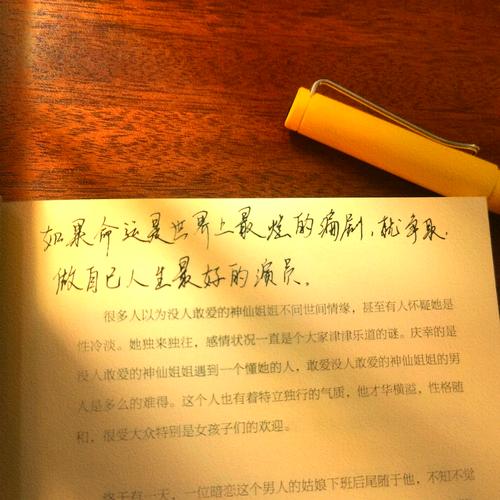 如果命运是世界上最烂的编剧，就争取
做自己人生最好的演员。
很多人以为没人敢爱的神仙姐姐不问世间情缘，甚至有人怀疑她是
性冷淡。她独来独往，感情状况一直是个大家津津乐道的谜。庆幸的是
没人敢爱的神仙姐姐遇到一个懂她的人，敢爱没人敢爱的神仙姐姐的男
人是多么的难得。这个人也有着特立独行的气质，他才华横溢，性格随
和，很受大众特别是女孩子们的欢迎。
终于有一天，一位暗恋这个男人的姑娘下班后尾随于他，不知不觉